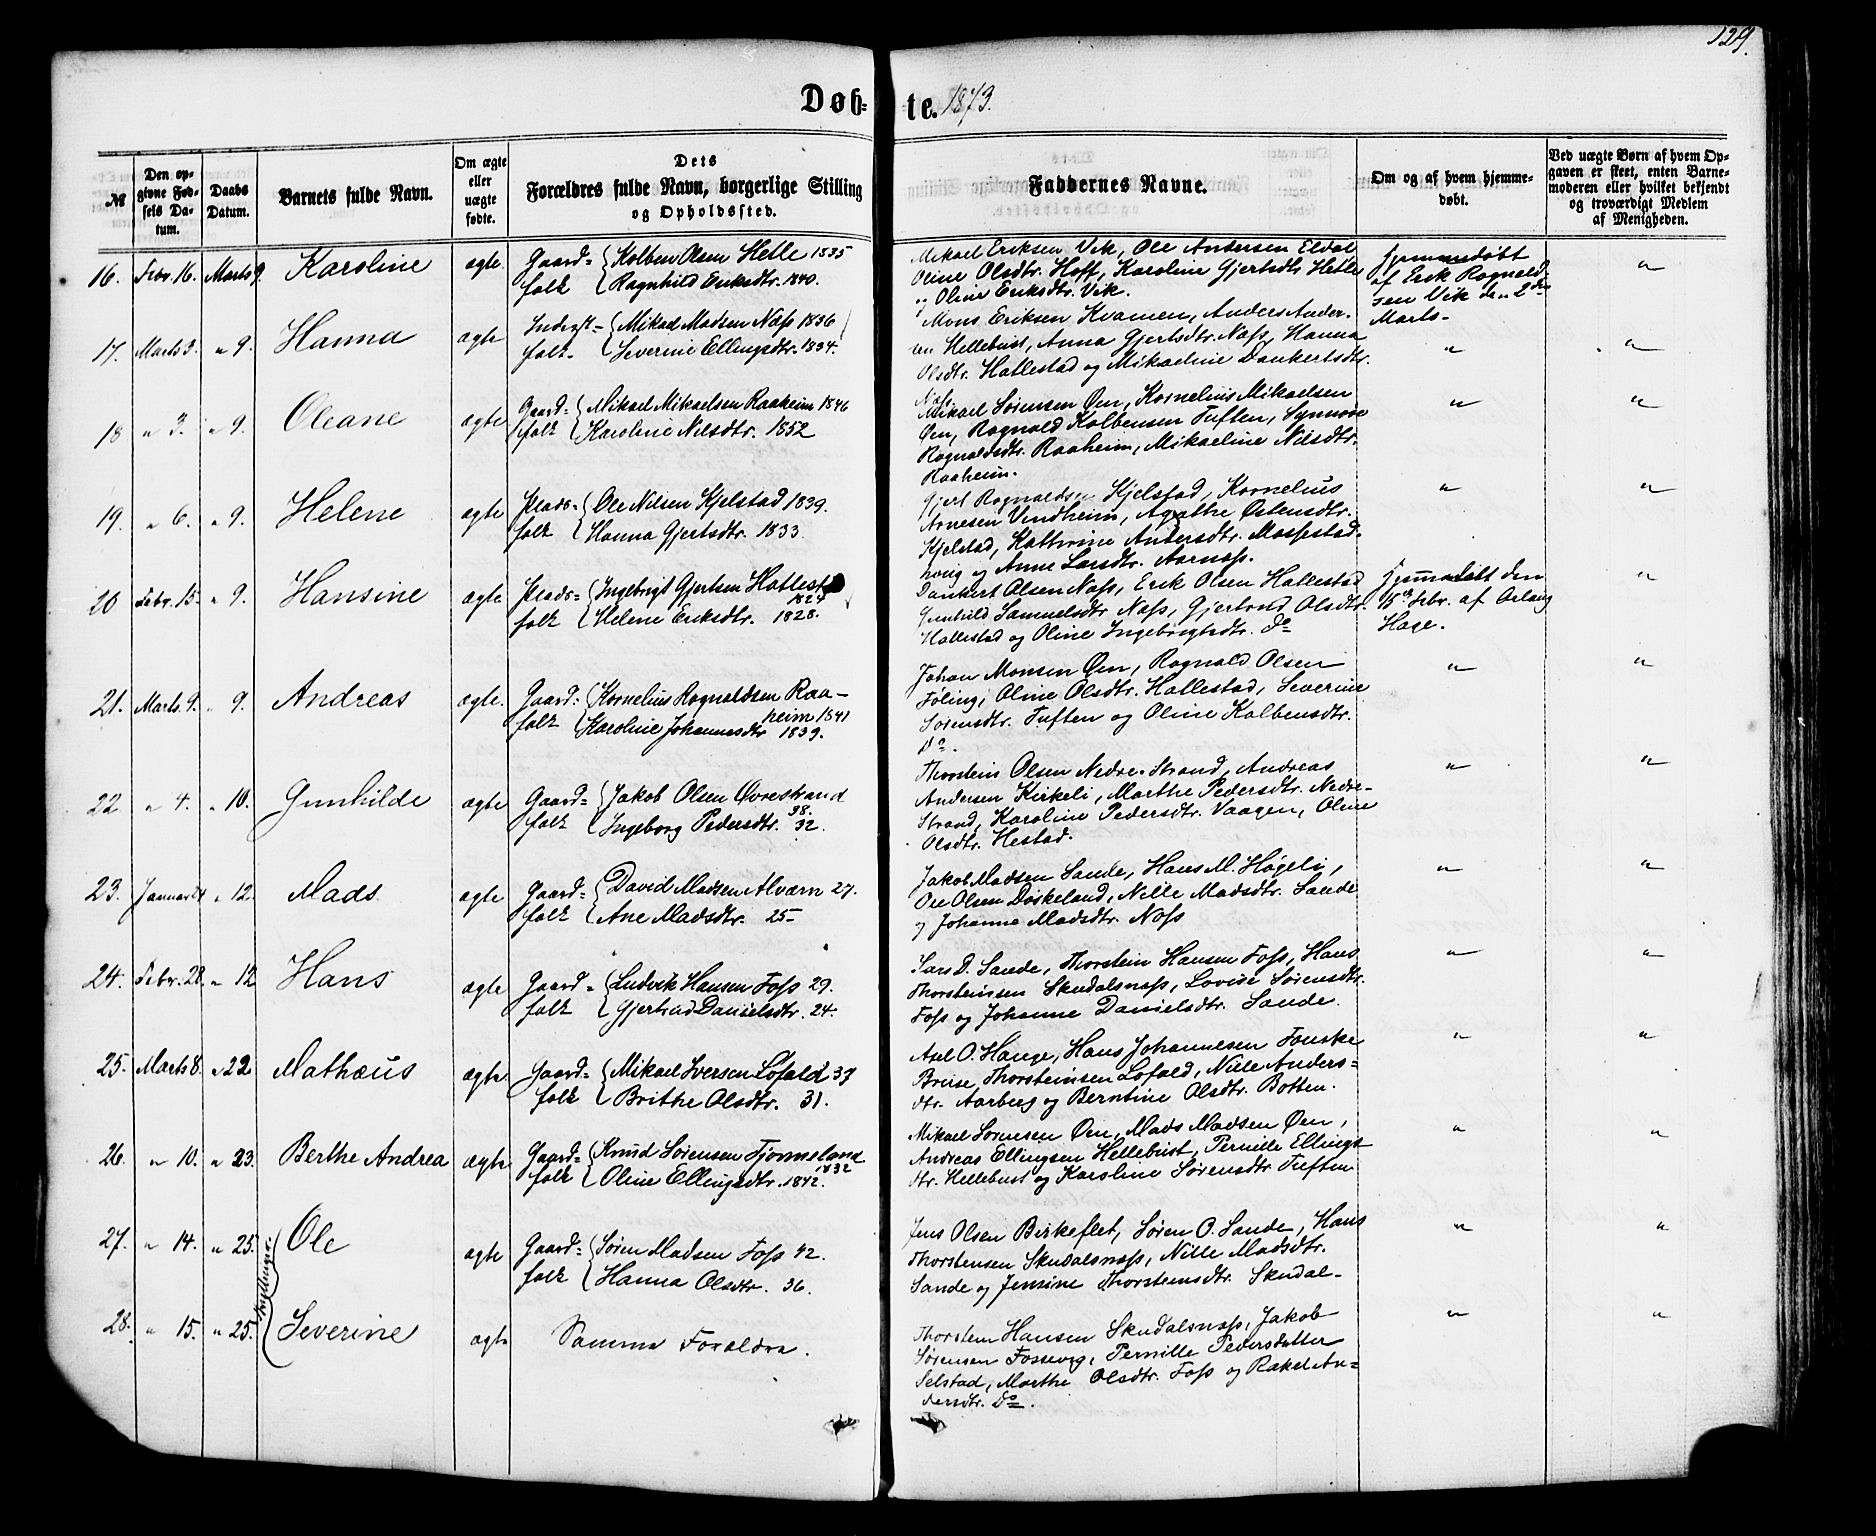 129.
Døb- te. 1873.
№
Den opgivne Fødsels Datum.
Daabs Datum.
Barnets fulde Navn.
Om ægte eller uægte fødte.
Dets Forældres fulde Navn, borgerlige Stilling og Opholdssted.
Faddernes Navne.
Om og af hvem hjemmedøbt.
Ved uægte Børn af hvem Opgaven er skeet, enten Barnemoderen eller hvilket bekjendt og troværdigt Medlem af Menigheden.
16. Febr. 16. Marts 9. Karoline ægte Gaard= { Kolben Olsen Hetle 1835
folk { Ragnhild Eriksdtr. 1840.
Mikael Eriksen Vik, Ole Andersen Eldal
Oline Olsdtr. Hoff, Karoline Gjertsdtr. Hetle
og Oline Eriksdtr. Vik.
Hjemmedøbt
af Erik Ragnald-
sen Vik den 2den
Marts-
"
17. Marts 3. " 9. Hanna ægte Inderst- { Mikael Madsen Næss 1836
folk { Severine Ellingsdtr. 1834.
Mons Eriksen Kvamen, Anders Ander-
sen Hellebust, Anna Gjertsdtr. Næss, Hanna
Olsdtr. Hallestad og Mikaeline Dankertsdtr.
Næss
" "
18 " 3. " 9. Oleane ægte Gaard= { Mikael Mikaelsen Raaheim 1846
folk { Karoline Nilsdtr. 1852
Mikael Sørensen Øen, Kornelius Mikaelsen
Øen, Ragnald Kolbensen Tuften, Synnøve
Ragnaldsdtr. Raaheim, Mikaeline Nilsdtr.
Raaheim.
" "
19. " 6. " 9. Helene ægte Plads= { Ole Nilsen Kjelstad 1839.
folk { Hanna Gjertsdtr. 1833.
Gjert Ragnaldsen Kjelstad, Kornelius
Arnesen Vindheim, Agathe Østensdtr.
Kjelstad, Kathrine Andersdtr. Massestad-
houg og Anne Larsdtr. Aarnæss.
" "
20 Febr. 15. " 9. Hansine ægte Plads= { Ingebrigt Gjertsen Hallest
1824
folk { Helene Eriksdtr. 1828.
Dankert Olsen Næss, Erik Olsen Hallestad
Gunhild Samuelsdtr Næss, Gjertrud Olsdtr.
Hallestad og Oline Ingebrigtsdtr. Do
Hjemmedøbt den
15de Febr. af Aslaug
Hage.
"
21. Marts. 9. " 9. Andreas ægte. Gaard= { Kornelius Ragnaldsen Raa-
heim 1841
folk { Karoline Johannesdtr 1839.
Johan Monsen Øen, Ragnald Olsen
Føling, Oline Olsdtr. Hallestad, Severine
Sørensdtr. Tuften og Oline Kolbensdtr.
Do.
" "
22 " 4. " 10. Gunhilde ægte Gaard= { Jakob Olsen Øvrestrand
38.
folk { Ingeborg Pedersdtr. 32.
Thorstein Olsen Nedre-Strand, Andreas
Andersen Kirkeli, Marthe Pedersdtr. Nedre-
Strand, Karoline Pedersdtr. Vaagen, Oline
Olsdtr. Hestad.
" "
23. Januar 24 " 12. Mads. ægte Gaard= { David Madsen Alværn 27.
folk { Ane Madsdtr. 25-
Jakob Madsen Sande, Hans M. Høgeli,
Ole Olsen Døskeland, Nille Madsdtr. Sande
og Johanne Madsdtr. Næss
" "
24. Febr. 28. " 12 Hans ægte Gaard= { Ludvik Hansen Foss 29.
folk { Gjertrud Danielsdtr. 24.
Lars D. Sande, Thorstein Hansen Foss, Hans
Thorsteinsen Skudalsnæss, Lovise Sørensdtr.
Foss og Johanne Danielsdtr. Sande.
" "
25. Marts 8. " 22 Mathæus ægte Gaard= { Mikael Iversen Lofald 37
folk { Brithe Olsdtr. 31.
Axel O. Hauge, Hans Johannesen Fonske
Thorsteinsen Lofald, Nille Anders=
dtr. Aarberg og Berntine Olsdtr. Botten.
" "
26. " 10. " 23. Berthe Andrea ægte Gaard= { Knud Sørensen Tjønneland
1832
folk { Oline Ellingsdtr. 1842.
Mikael Sørensen Øen, Mads Madsen Øen,
Andreas Ellingsen Hellebust, Pernille Ellings
dtr. Hellebust og Karoline Sørensdtr Tuften
" "
27. " 14. " 25. Ole ægte Gaard= { Søren Madsen Foss 42.
folk { Hanna Olsdtr. 36.
Jens Olsen Birkeflet, Søren O. Sande, Hans
Thorstensen Skudalsnæss, Nille Madsdtr.
Sande og Jensine Thorsteinsdtr. Skudal-
" "
Tvillinger
28. " 15. " 25. Severine ægte Samme Forældre.
Thorstein Hansen Skudalsnæss, Jakob
Sørensen Fosseveg, Pernille Pedersdatter
Selstad, Marthe Olsdtr. Foss og Rakel An=
dersdtr. Do.
" "